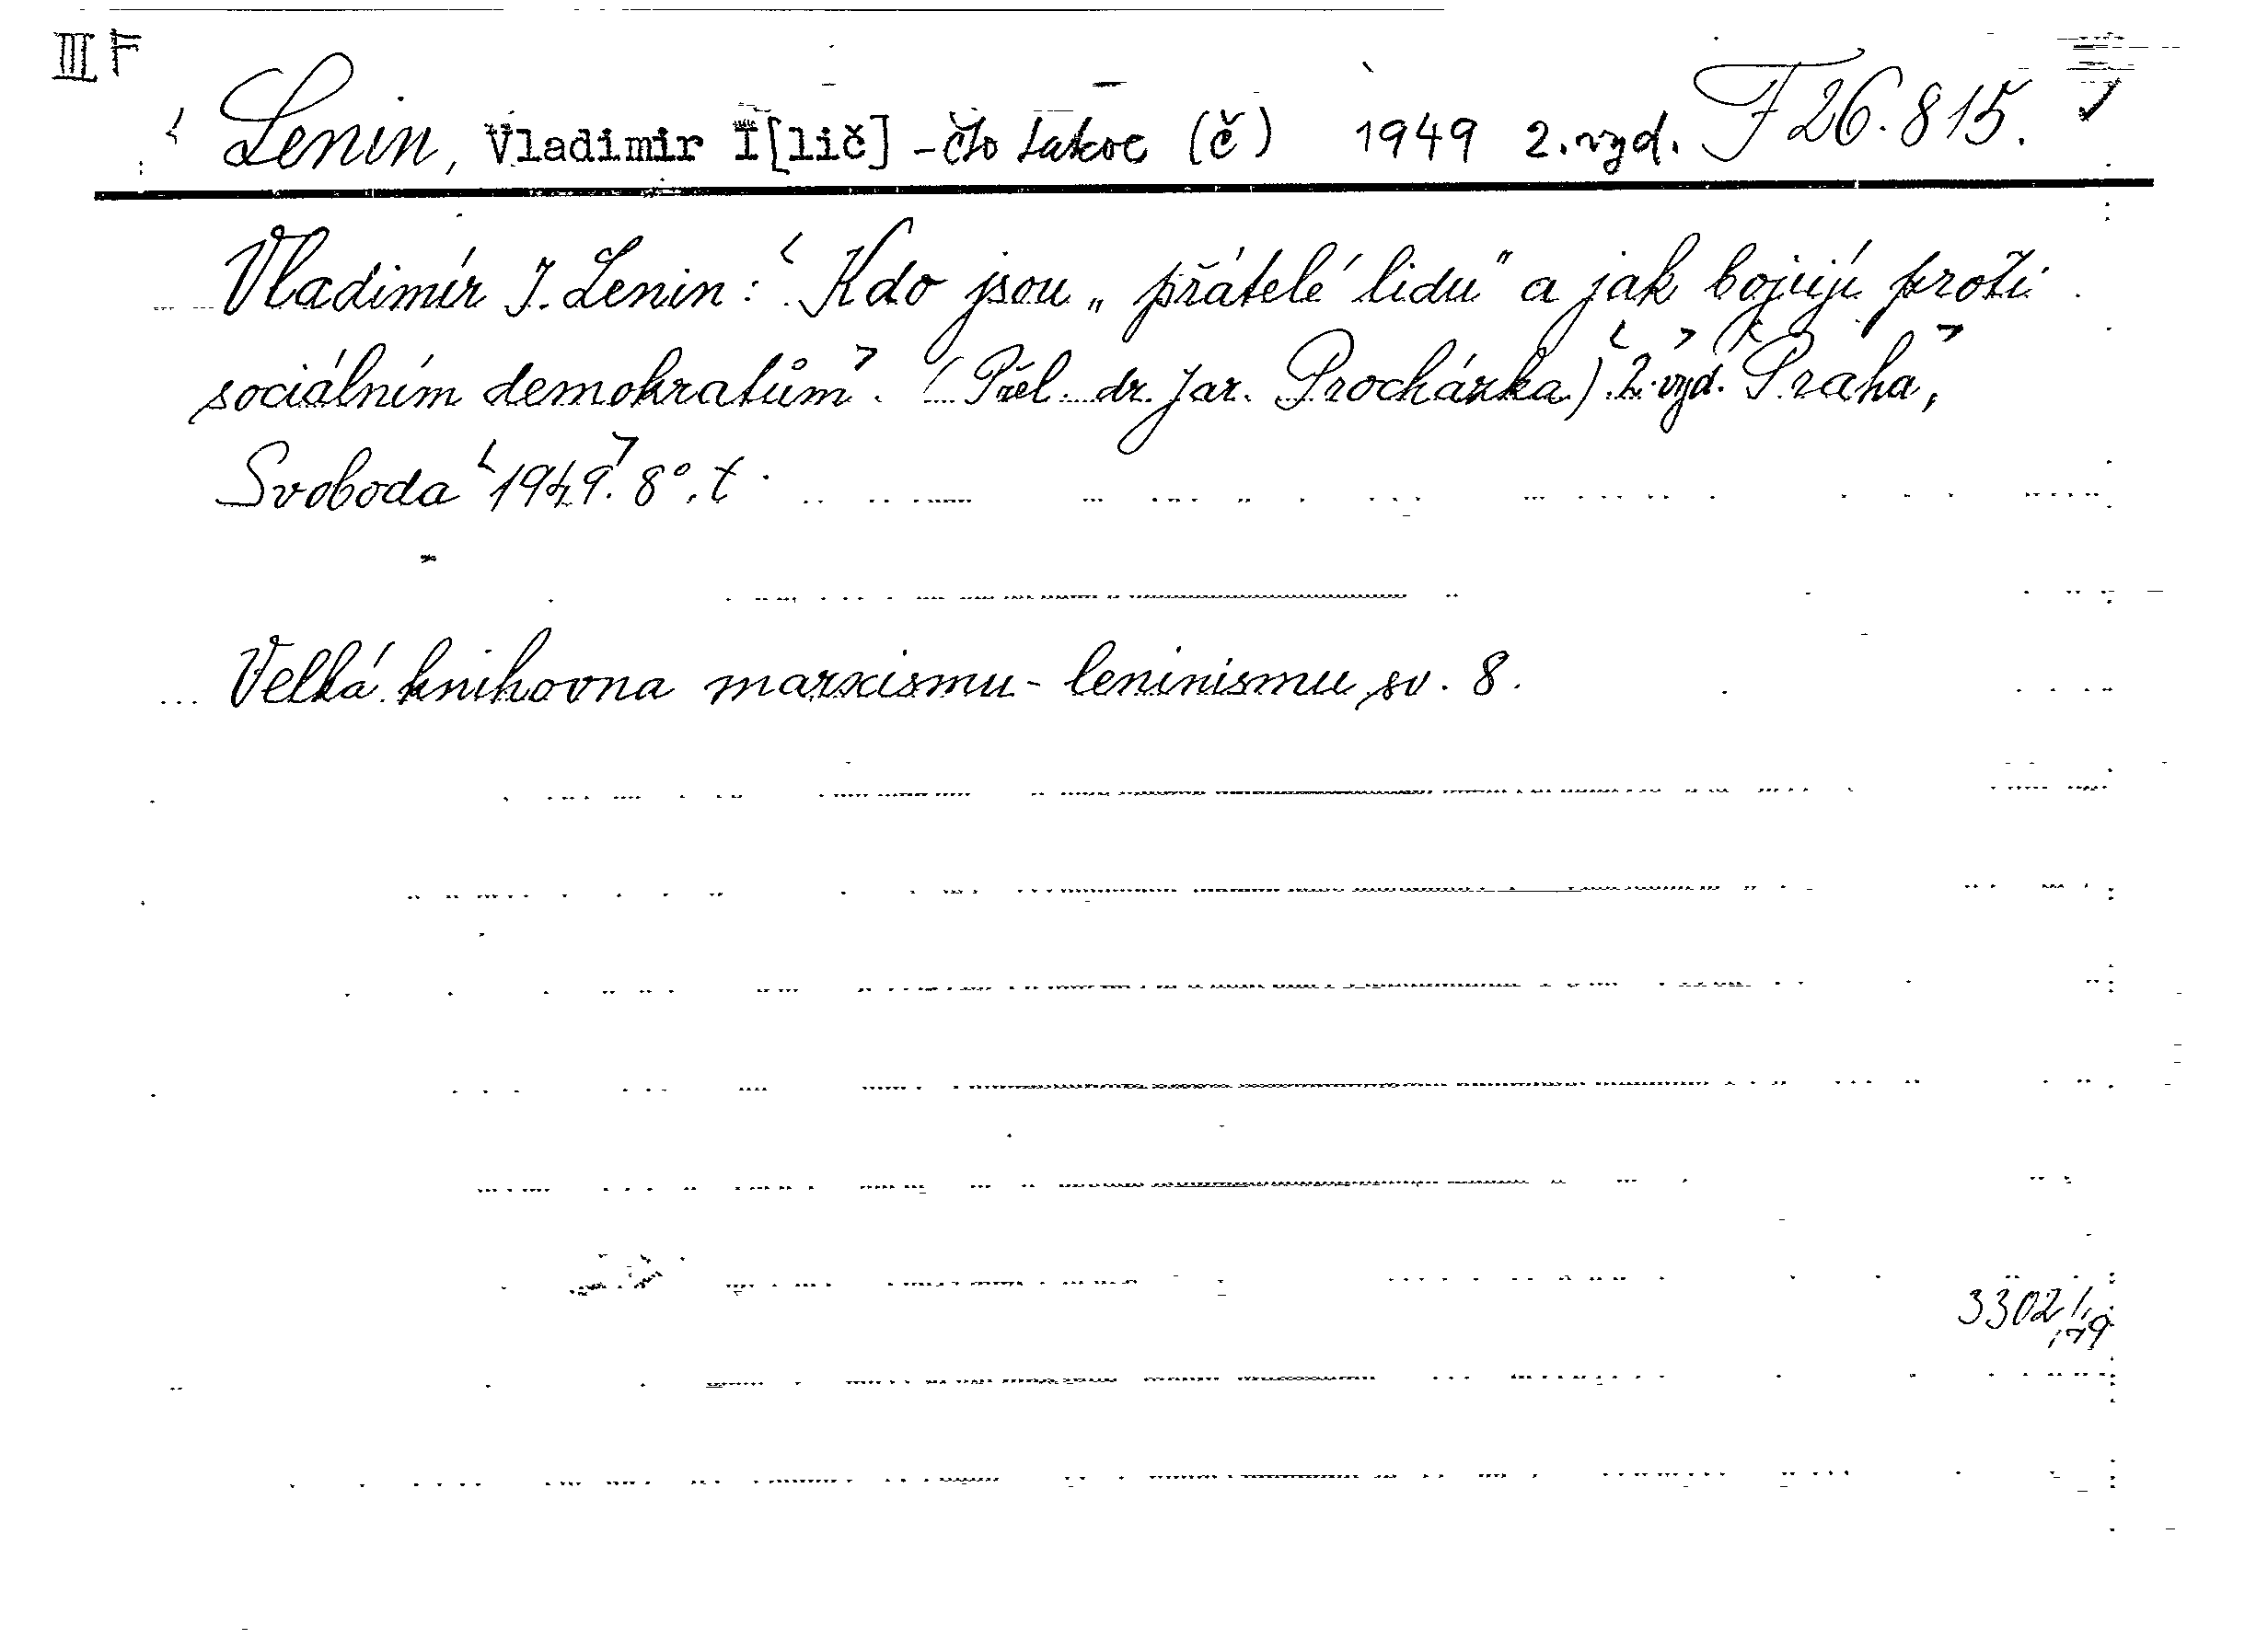 III F
Lenin, Vladimir I[lič] - čto takoe (č) 1949 2. vyd. F 26.815.
Vladimír I. Lenin: Kdo jsou „přátelé lidu" a jak bojují proti
sociálním demokratům. (Přel. dr. Jar. Procházka.) 2. vyd. Praha,
Svoboda 1949. 8°. t.
Velká knihovna marxismu-leninismu, sv. 8.
3302/